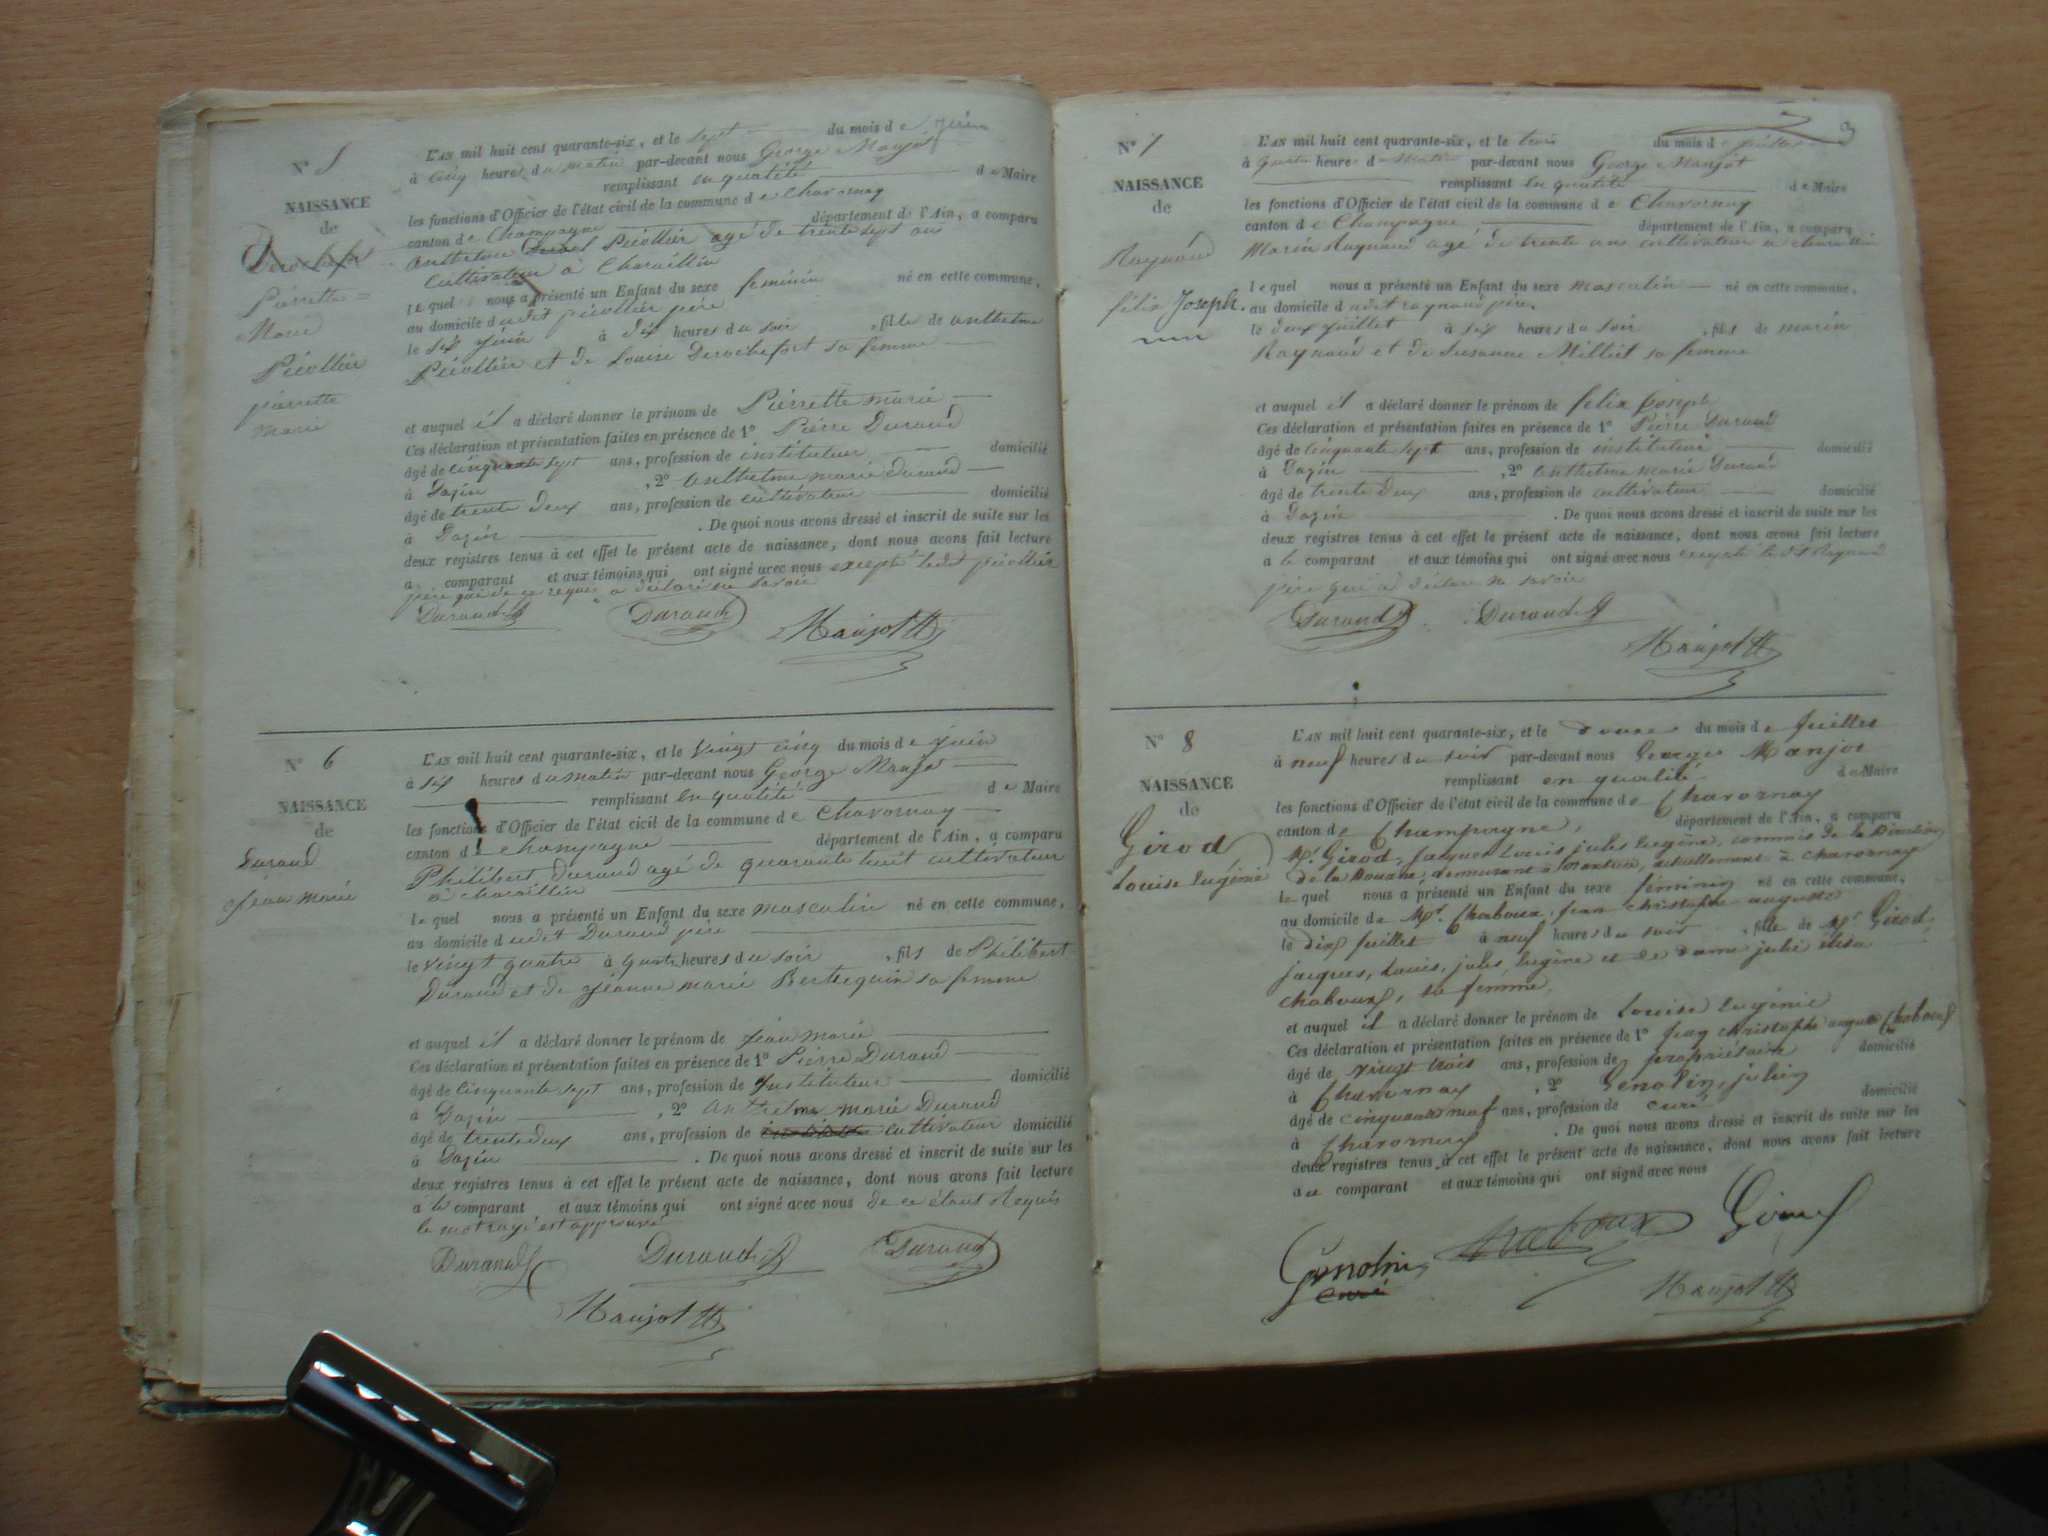 N° 5
NAISSANCE
de
Pierrette
Marie
Picollier
pierrette
marie
L'AN mil huit cent quarante-six, et le sept du mois de juin
à cinq heures du matin par-devant nous George Manjot
remplissant en qualité de Maire
les fonctions d'Officier de l'état civil de la commune de Chavornay
canton de Champagne département de l'Ain, a comparu
anthelme Picollier agé de trente sept ans
Cultivateur à Charaillin
lequel nous a présenté un Enfant du sexe feminin né en cette commune,
au domicile dudit picollier père
le six juin à dix heures du soir, fille de anthelme
Picollier et de Louise Derochefort sa femme
et auquel il a déclaré donner le prénom de Pierrette marie
Ces déclaration et présentation faites en présence de 1° Pierre Durand
âgé de cinquante sept ans, profession de instituteur domicilié
à Dazin, 2° anthelme marie Durand
âgé de trente deux ans, profession de cultivateur domicilié
à Dazin. De quoi nous avons dressé et inscrit de suite sur les
deux registres tenus à cet effet le présent acte de naissance, dont nous avons fait lecture
a comparant et aux témoins qui ont signé avec nous excepté ledit picollier
père qui de ce requis a déclaré ne savoir
Durand Durand Manjot
N° 6
NAISSANCE
de
Durand
Jean marie
L'AN mil huit cent quarante-six, et le vingt cinq du mois de juin
à six heures du matin par-devant nous George Manjot
remplissant en qualité de Maire
les fonctions d'Officier de l'état civil de la commune de Chavornay
canton de champagne département de l'Ain, a comparu
Philibert Durand agé de quarante huit cultivateur
à charaillin
lequel nous a présenté un Enfant du sexe masculin né en cette commune,
au domicile dudit Durand père
le vingt quatre à quatre heures du soir, fils de Philibert
Durand et de Jeanne marie Berthequin sa femme
et auquel il a déclaré donner le prénom de Jean marie
Ces déclaration et présentation faites en présence de 1° Pierre Durand
âgé de Cinquante sept ans, profession de Instituteur domicilié
à Dazin, 2° anthelme marie Durand
âgé de trente deux ans, profession de cultivateur domicilié
à Dazin. De quoi nous avons dressé et inscrit de suite sur les
deux registres tenus à cet effet le présent acte de naissance, dont nous avons fait lecture
a le comparant et aux témoins qui ont signé avec nous de ce étant Requis
le mot rayé est approuvé
Durand Durand Durand
Manjot
3
N° 7
NAISSANCE
de
Raynaud
félix Joseph.
L'AN mil huit cent quarante-six, et le trois du mois de juillet
à quatre heures du matin par-devant nous George Manjot
remplissant en qualité de Maire
les fonctions d'Officier de l'état civil de la commune de Chavornay
canton de Champagne département de l'Ain, a comparu
Marin Raynaud agé de trente ans cultivateur a charaillin
lequel nous a présenté un Enfant du sexe masculin né en cette commune,
au domicile dudit raynaud père
le deux juillet à six heures du soir, fils de marin
Raynaud et de Susanne Milliet sa femme
et auquel il a déclaré donner le prénom de félix joseph
Ces déclaration et présentation faites en présence de 1° Pierre Durand
âgé de Cinquante sept ans, profession de instituteur domicilié
à Dazin, 2° anthelme marie Durand
âgé de trente deux ans, profession de cultivateur domicilié
à Dazin. De quoi nous avons dressé et inscrit de suite sur les
deux registres tenus à cet effet le présent acte de naissance, dont nous avons fait lecture
a le comparant et aux témoins qui ont signé avec nous excepté ledit Raynaud
père qui a déclaré ne savoir
Durand Durand
Manjot
N° 8
NAISSANCE
de
Girod
Louise Eugénie
L'AN mil huit cent quarante-six, et le douze du mois de Juillet
à neuf heures du soir par-devant nous Georges Manjot
remplissant en qualité de Maire
les fonctions d'Officier de l'état civil de la commune de Chavornay
canton de Champagne, département de l'Ain, a comparu
Mr. Girod, Jacques Louis jules Eugène, commis de la Direction
de la Douane, demeurant à Nantua, actuellement à chavornay
lequel nous a présenté un Enfant du sexe féminin né en cette commune,
au domicile de Mr. Chaboux, jean christophe auguste
le dix juillet à neuf heures du soir, fille de Mr Girod,
jacques, Louis, jules, Eugène et de dame julie élisa
chaboux, sa femme,
et auquel il a déclaré donner le prénom de Louise Eugénie
Ces déclaration et présentation faites en présence de 1° jean christophe auguste Chaboux
âgé de vingt trois ans, profession de propriétaire domicilié
à Chavornay, 2° Genolin, julien
âgé de cinquante neuf ans, profession de curé domicilié
à Chavornay. De quoi nous avons dressé et inscrit de suite sur les
deux registres tenus à cet effet le présent acte de naissance, dont nous avons fait lecture
au comparant et aux témoins qui ont signé avec nous
Genolin Chaboux Girod
curé
Manjot